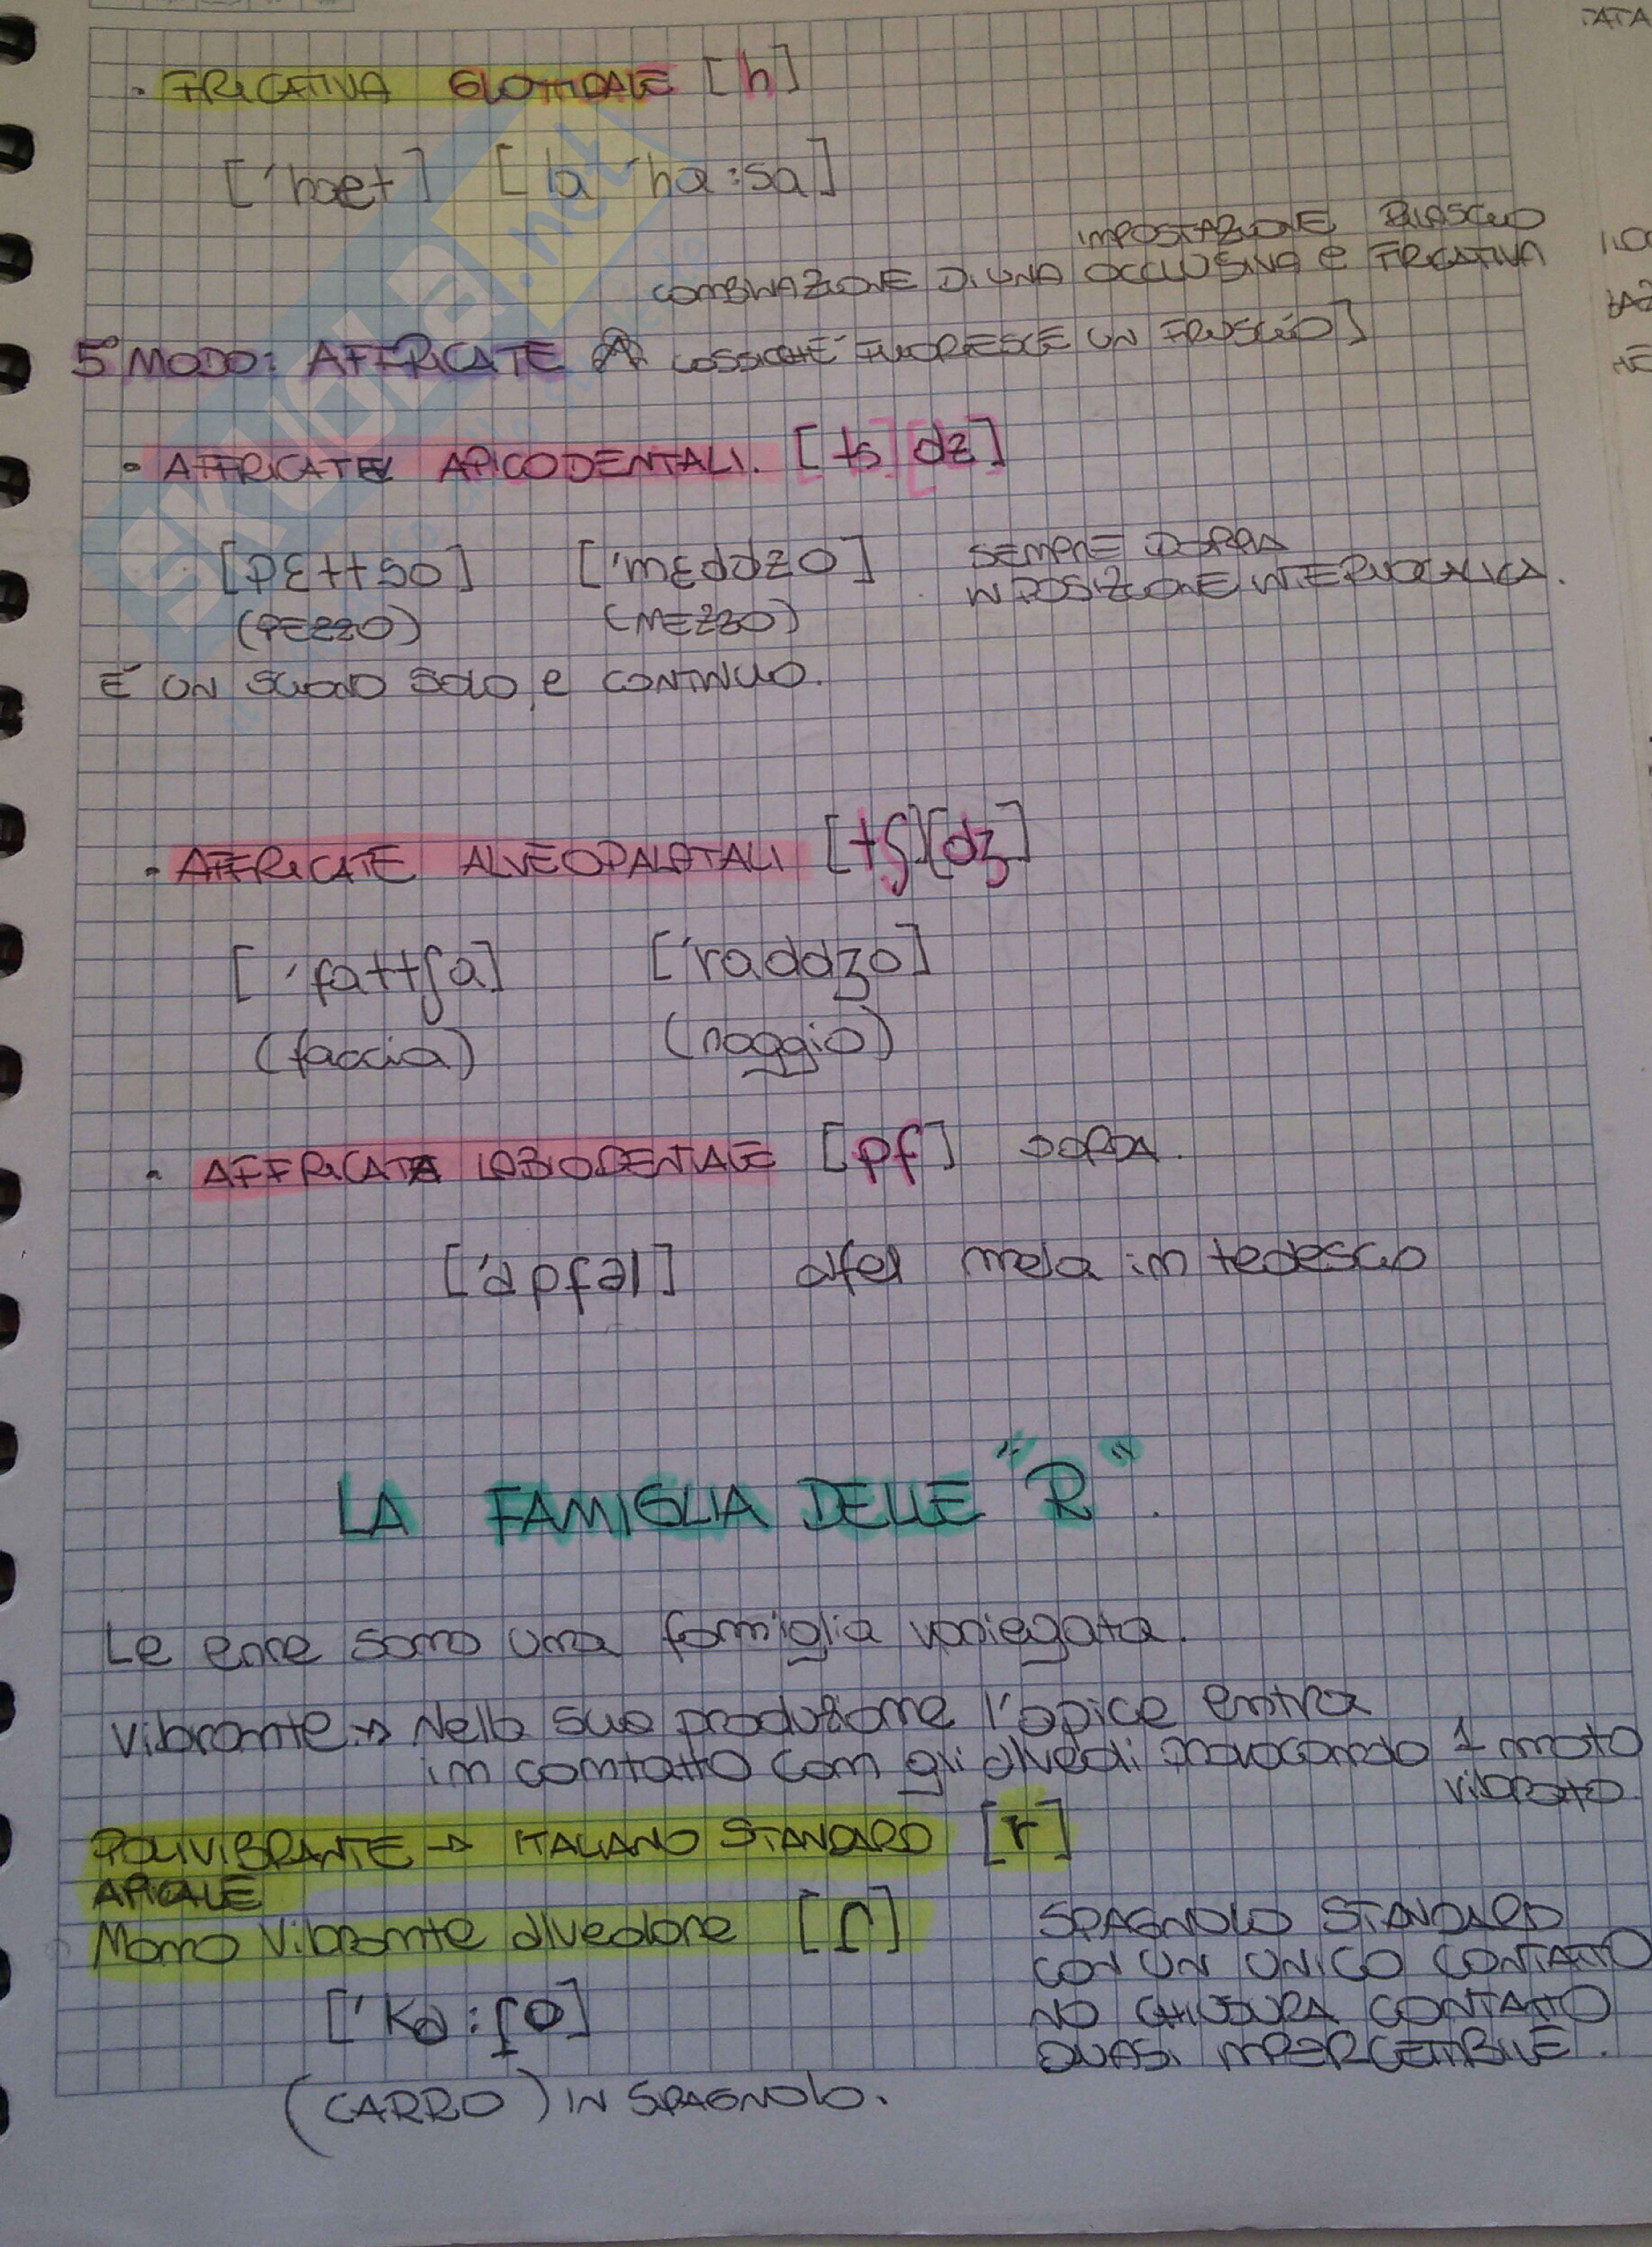 · FRICATIVA GLOTTIDALE [h]
['hæt] [la 'ha:sa]
IMPOSTAZIONE RILASCIO
COMBINAZIONE DI UNA OCCLUSIVA e FRICATIVA
5° MODO: AFFRICATE COSSICCHÉ FUORIESCE UN FRUSCÍO]
· AFFRICATE APICODENTALI. [ts][dz]
[pɛttso] ['mɛddzo] SEMPRE DOPPIA
(PEZZO) (MEZZO) IN POSIZIONE INTERVOCALICA.
É UN SUONO SOLO, e CONTINUO.
· AFFRICATE ALVEOPALATALI [tʃ][dʒ]
['fattʃa] ['raddʒo]
(faccia) (raggio)
· AFFRICATA LABIODENTALE [pf] SORDA.
['apfəl] afel mela in tedesco
LA FAMIGLIA DELLE "R".
Le erre sono una famiglia variegata.
Vibrante → Nella sua produzione l'apice entra
in contatto con gli alveoli provocando 1 moto
vibrato
POLIVIBRANTE → ITALIANO STANDARD [r]
APICALE
Mono Vibrante alveolare [ɾ] SPAGNOLO STANDARD
CON UN UNICO CONTATTO
['Ka:ɾo] NO CHIUSURA CONTATTO
QUASI IMPERCETTIBILE.
(CARRO) IN SPAGNOLO.
SKUOLA.net